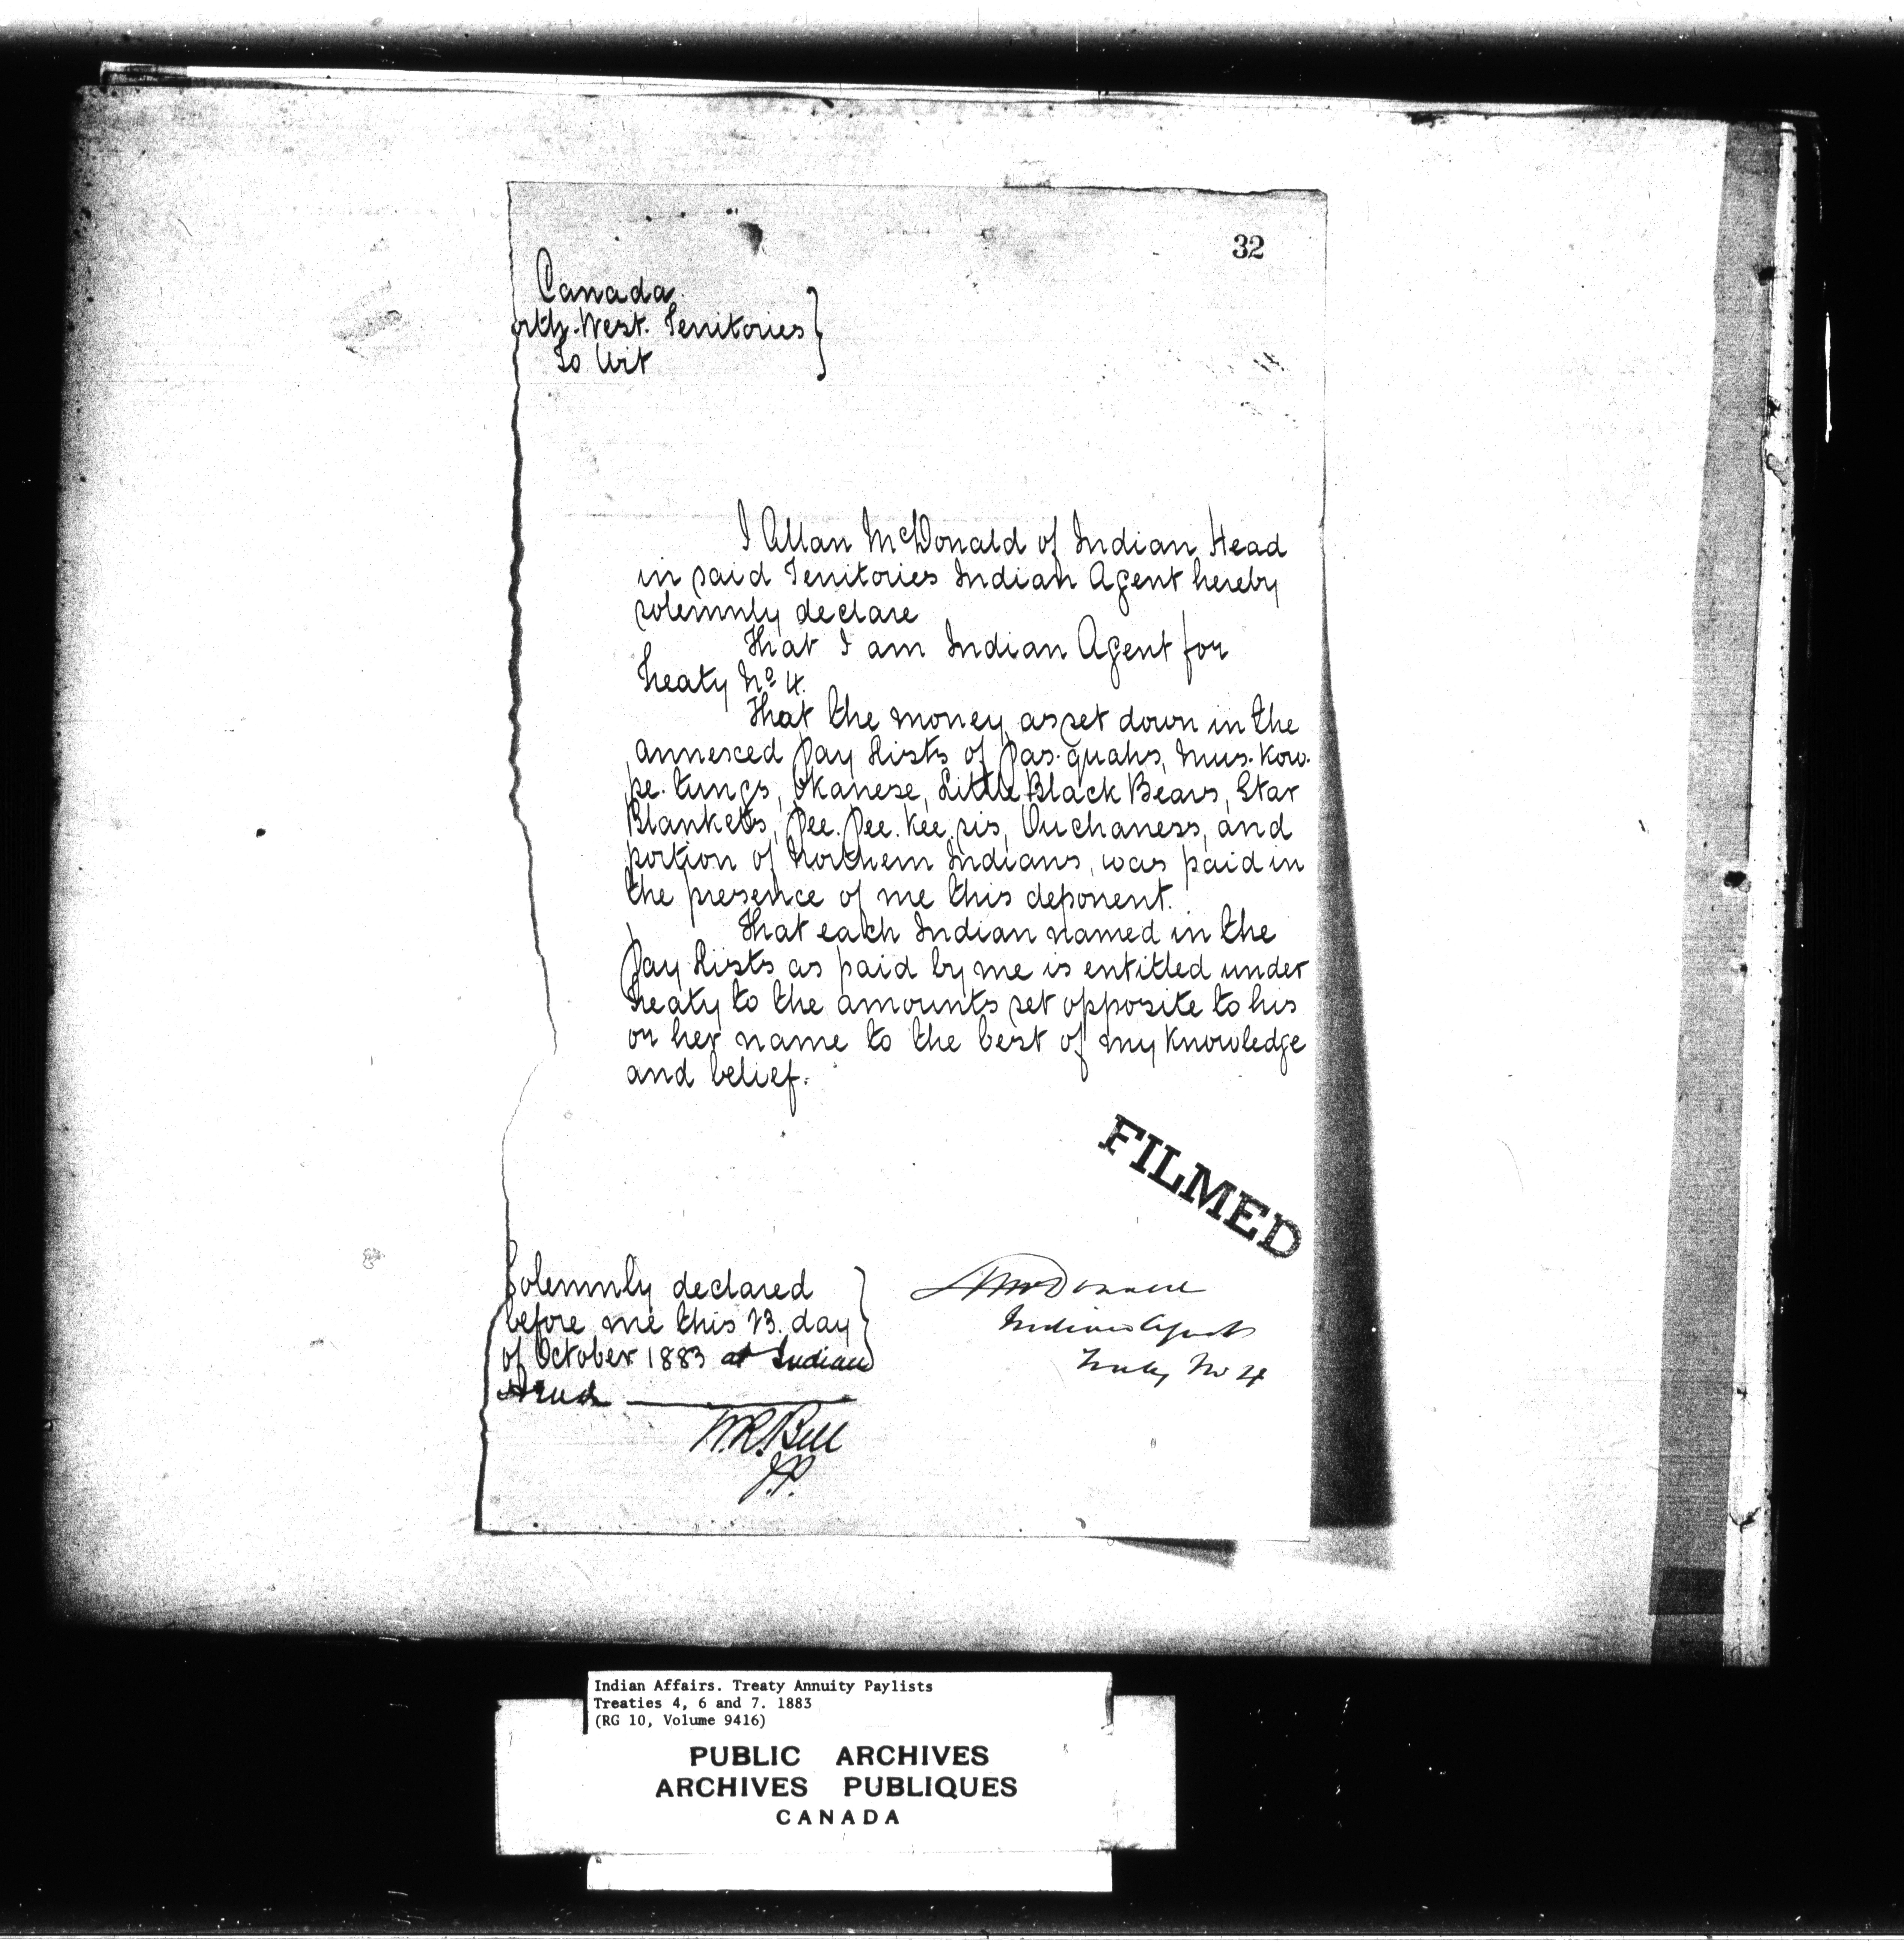 32
Canada
orth-West. Territories
To Wit
I Allan McDonald of Indian Head
in said Territories Indian Agent hereby
solemnly declare
That I am Indian Agent for
Treaty No 4.
That the money as set down in the
annexed Pay Lists of Pas-quahs, Mus-kow-
pe-tungs, Okanese, Little Black Bears, Star
Blankets, Pee-Pee-Kee-sis, Ouchaness, and
portion of Northern Indians, was paid in
the presence of me this deponent.
That each Indian named in the
Pay Lists as paid by me is entitled under
Treaty to the amounts set opposite to his
or her name to the best of my knowledge
and belief.
FILMED
Solemnly declared
before me this 23. day
of October 1883 at Indian
Head
W.R. Bell
J.P.
A McDonald
Indian Agent
Treaty No 4
Indian Affairs. Treaty Annuity Paylists
Treaties 4, 6 and 7. 1883
(RG 10, Volume 9416)
PUBLIC ARCHIVES
ARCHIVES PUBLIQUES
CANADA